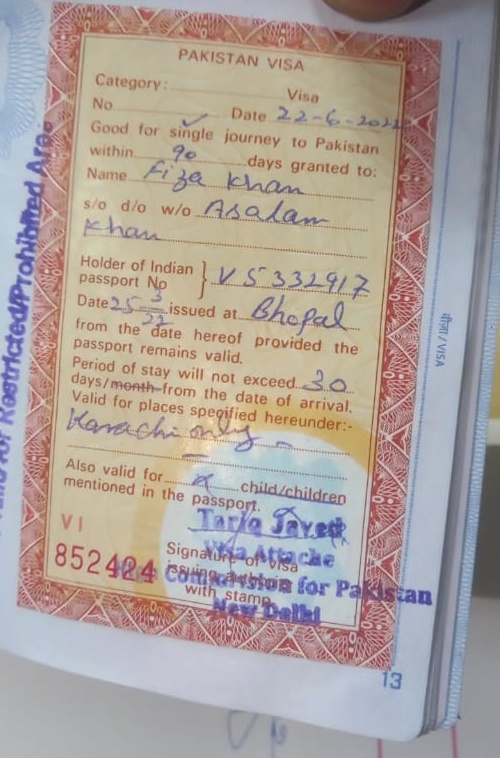 PAKISTAN VISA
Category: Visa
No Date 22-6-2022
Good for single journey to Pakistan
within 90 days granted to:
Name Fiza Khan
s/o d/o w/o Asalam
Khan
Holder of Indian
passport No } V5332917
Date 25 3/22 issued at Bhopal
from the date hereof provided the
passport remains valid.
Period of stay will not exceed 30
days/month from the date of arrival.
Valid for places specified hereunder:-
Karachi only
Also valid for x child/children
mentioned in the passport.
VI
852424
Signature of visa
issuing
with stamp
Tariq Javed
Visa Attache
Commission for Pakistan
New Delhi
for Restricted/Prohibited Area.
वीज़ा / VISA
13